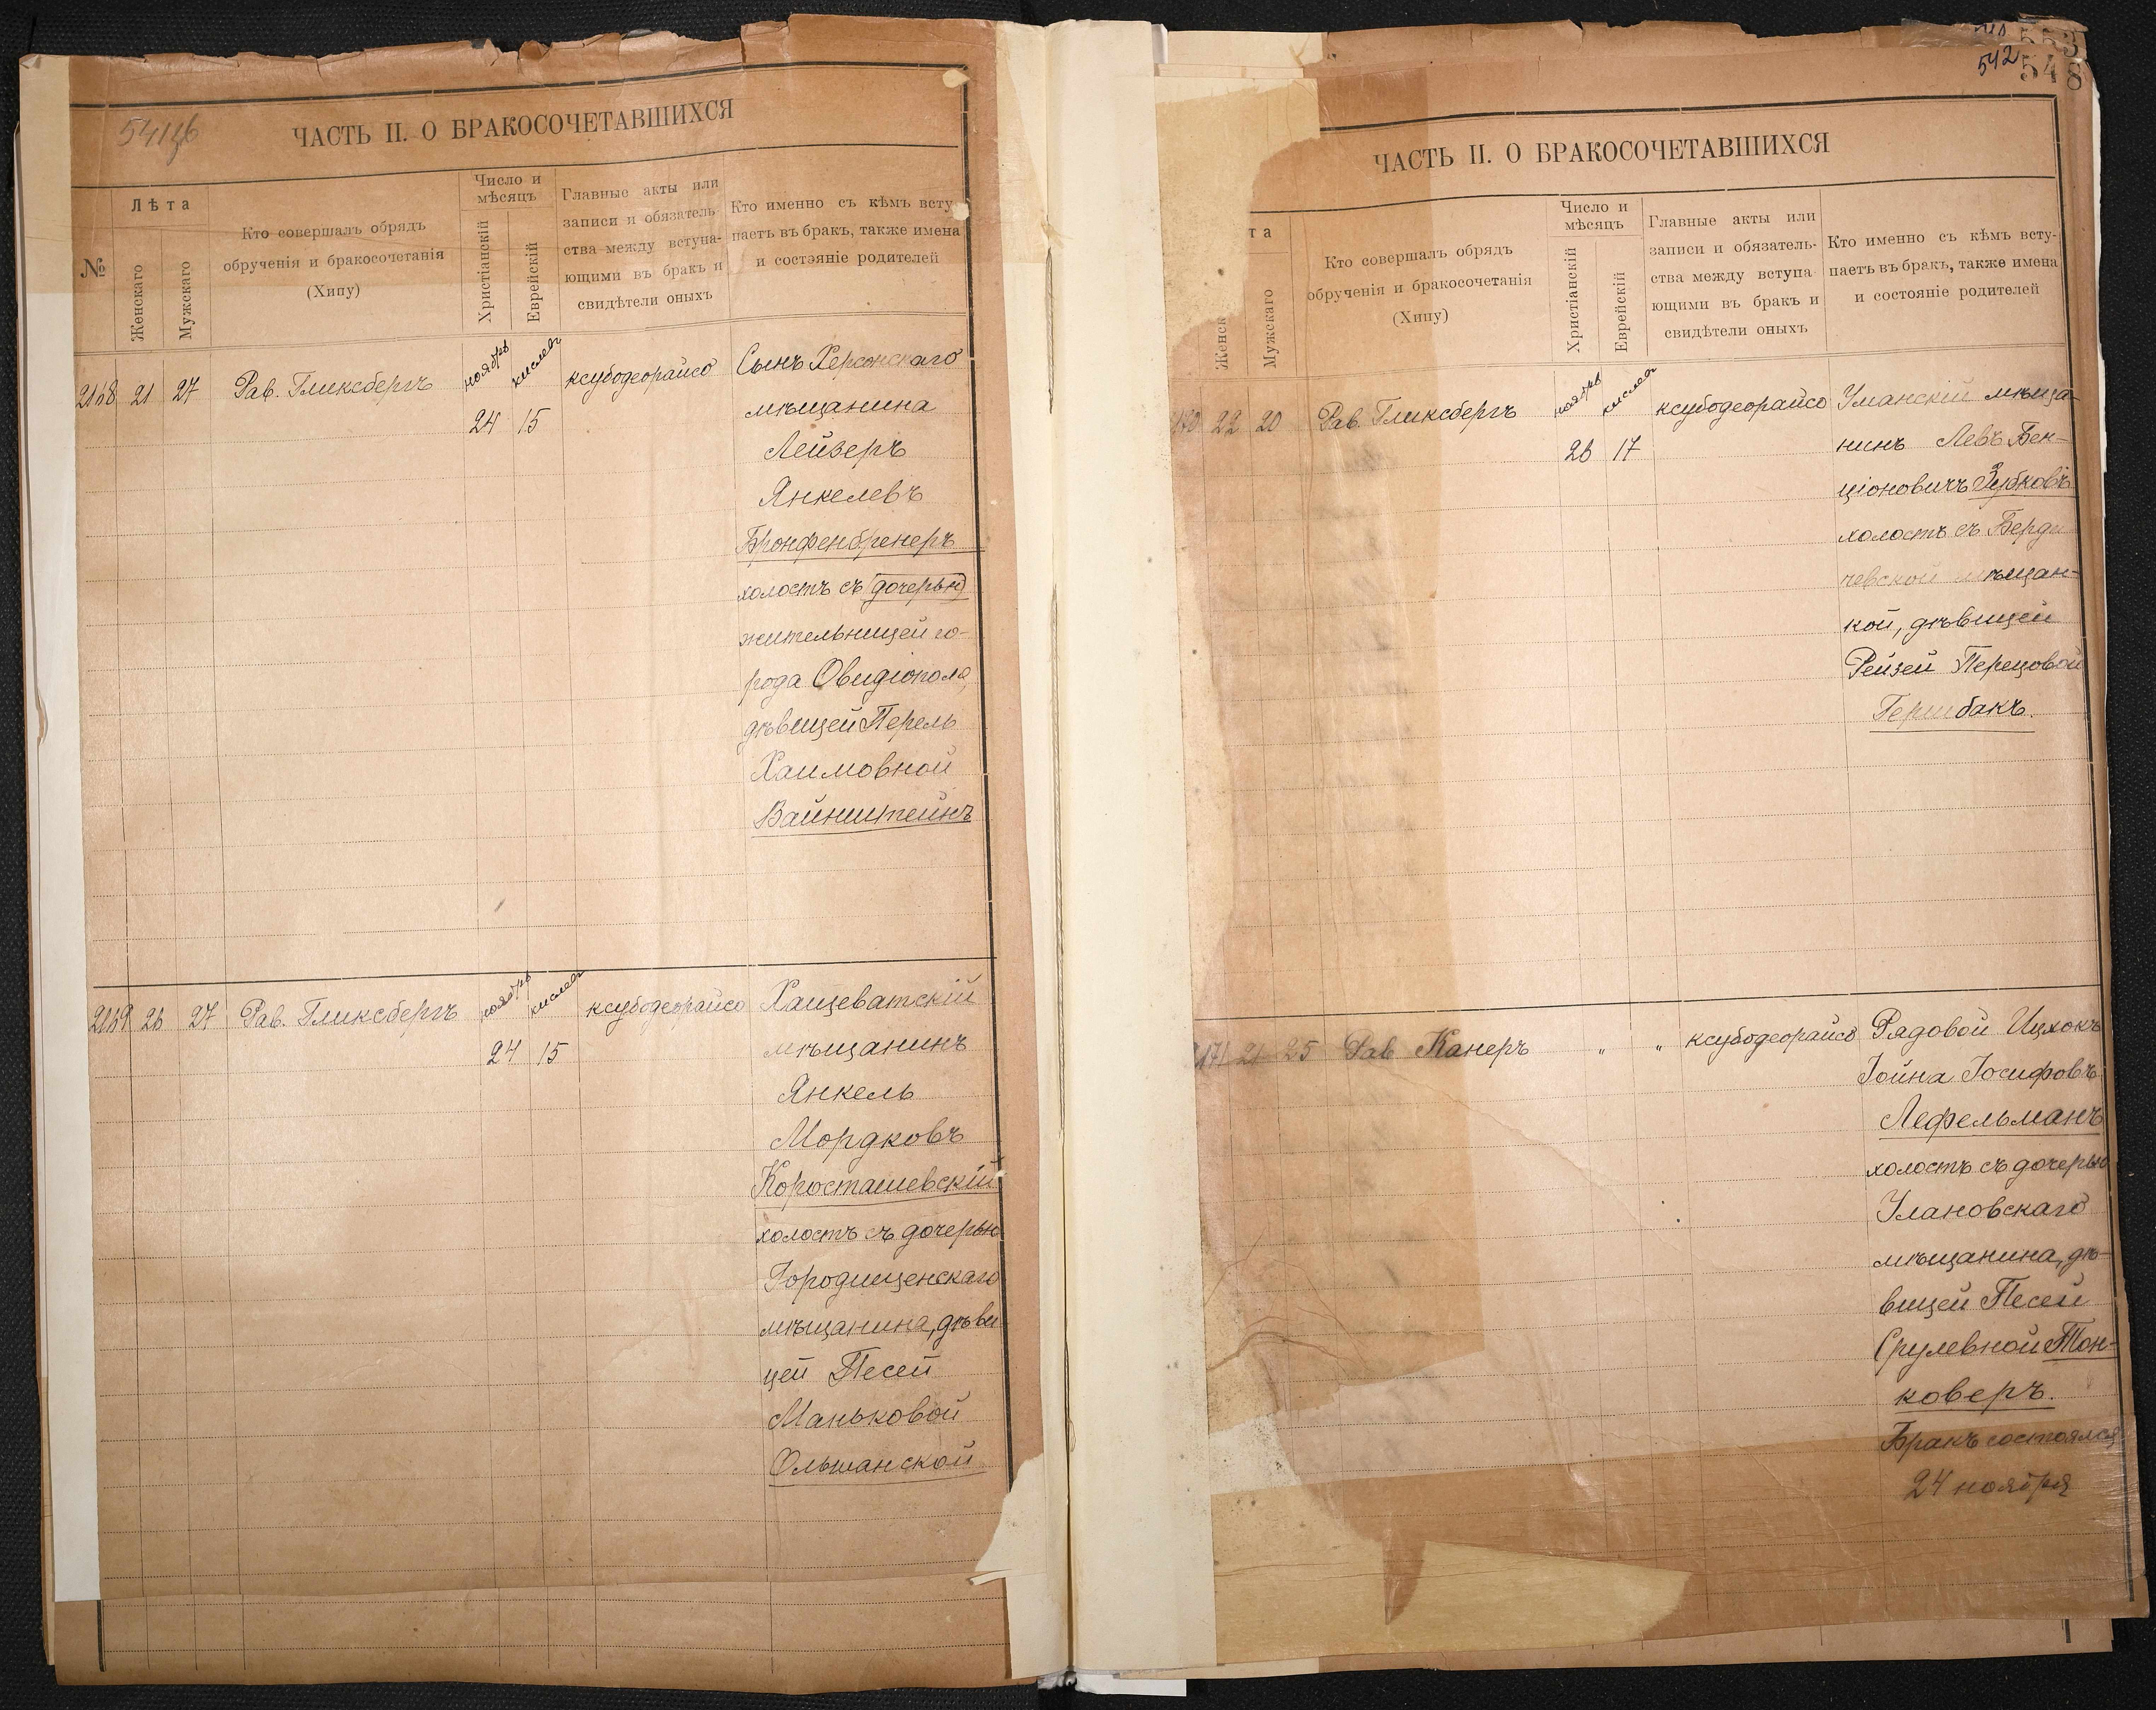 ЧАСТЬ II. О БРАКОСОЧЕТАВШИХСЯ
№
Лѣта
Женскаго
Мужскаго
Кто совершалъ обрядъ
обрученія и бракосочетанія
(Хипу)
Число и
мѣсяцъ
Христіанскій
Еврейскій
Главные акты или
записи и обязатель-
ства между вступа-
ющими въ бракъ и
свидѣтели оныхъ
Кто именно съ кѣмъ всту-
паетъ въ бракъ, также имена
и состэяніе родителей
2168 21 27 Рав. Гликсбергъ ноябрь кислевъ ксубодеорайсо Сынъ Херсонскаго
24 15 мѣщанина
Лейзеръ
Янкелевъ
Бронфенбренеръ
холостъ съ дочерью
жительницей го-
рода Овидіополя,
дѣвицей Перель
Хаимовной
Вайнштейнъ
2169 26 27 Рав. Гликсбергъ ноябрь кислевъ ксубодеорайсо Хащеватскій
24 15 мѣщанинъ
Янкель
Мордковъ
Коросташевскій
холостъ съ дочерью
Городищенскаго
мѣщанина, дѣви
цей Песей
Маньковой
Ольшанской
542
548
ЧАСТЬ II. О БРАКОСОЧЕТАВШИХСЯ
та
Женск
Мужскаго
Кто совершалъ обрядъ
обрученія и бракосочетанія
(Хипу)
Число и
мѣсяцъ
Христіанскій
Еврейскій
Главные акты или
записи и обязатель-
ства между вступа
ющими въ бракъ и
свидѣтели оныхъ
Кто именно съ кѣмъ всту-
паетъ въ бракъ, также имена
и состояніе родителей
22 20 Рав. Гликсбергъ ноябрь кислевъ ксубодеорайсо Уманскій мѣща-
26 17 нинъ Левъ Бен-
ціоновичъ Зубковъ
холостъ съ Берди
чевской мѣщан-
кой, дѣвицей
Рейзей Перецовой
Гершбакъ.
2171 21 25 Рав Канеръ " " ксубодеорайсо Рядовой Ицхокъ
Іойна Іосифовъ
Лефельманъ
холостъ съ дочерью
Улановскаго
мѣщанина, дѣ-
вицей Песей
Срулевной Тон-
коверъ.
Бракъ состоялся
24 ноября